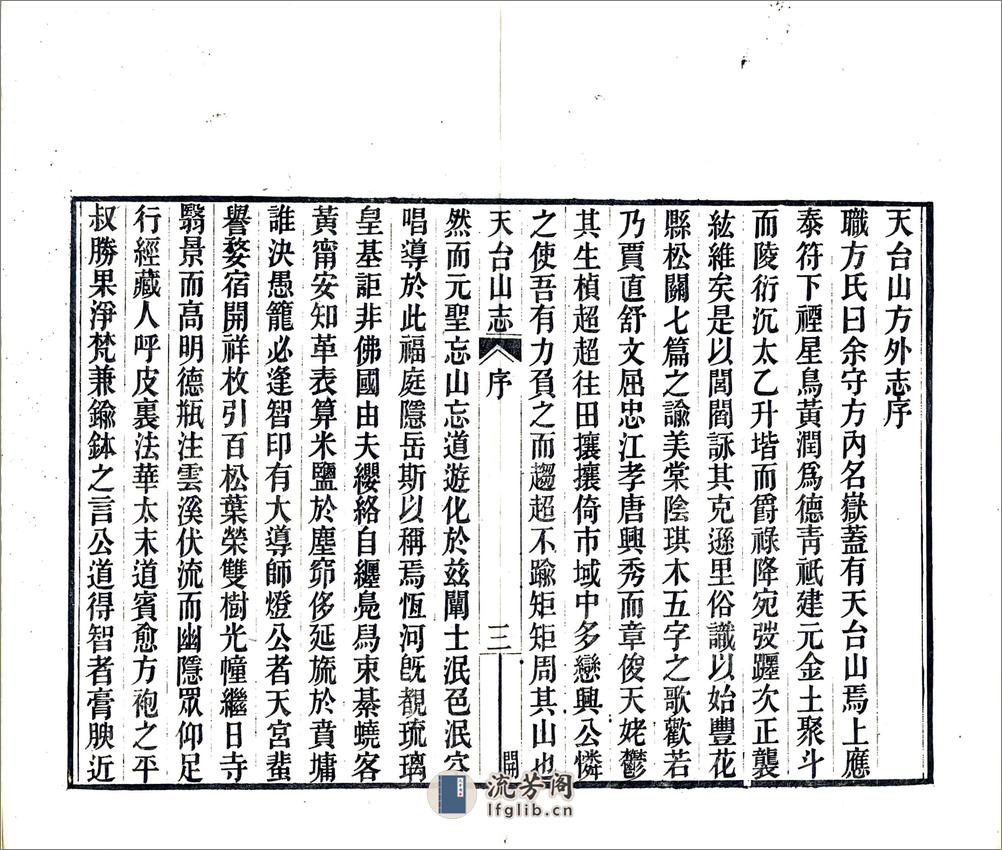 天台山方外志序
職方氏曰余守方內名嶽蓋有天台山焉上應
泰符下禋星鳥黃潤爲德青祇建元金土聚斗
而陵衍沉太乙升堦而爵祿降宛㢮躔次正襲
紘維矣是以閭閻詠其克遜里俗識以始豐花
縣松關七篇之諭美棠陰琪木五字之歌歡若
乃賈直舒文屈忠江孝唐興秀而章俊天姥鬱
其生楨超超往田攘攘倚市域中多戀興公憐
之使吾有力負之而趨超不踰矩矩周其山也
天台山志
序
三
然而元聖忘山忘道遊化於兹闡士泯色泯空
唱導於此福庭隱岳斯以稱焉恆河既觀琉璃
皇基詎非佛國由夫纓絡自纏鳧舄束綦蟯客
黃甯安知革表算米鹽於塵窌侈延旒於賁墉
誰決愚籠必逢智印有大導師燈公者天宮蜚
譽婺宿開祥枚引百松葉榮雙樹光幢繼日寺
翳景而高明德瓶注雲溪伏流而幽隱眾仰足
行經藏人呼皮裏法華太末道賓愈方袍之平
叔勝果淨梵兼鍮鉢之言公道得智者膏腴近
流芳阁
lfglib.cn